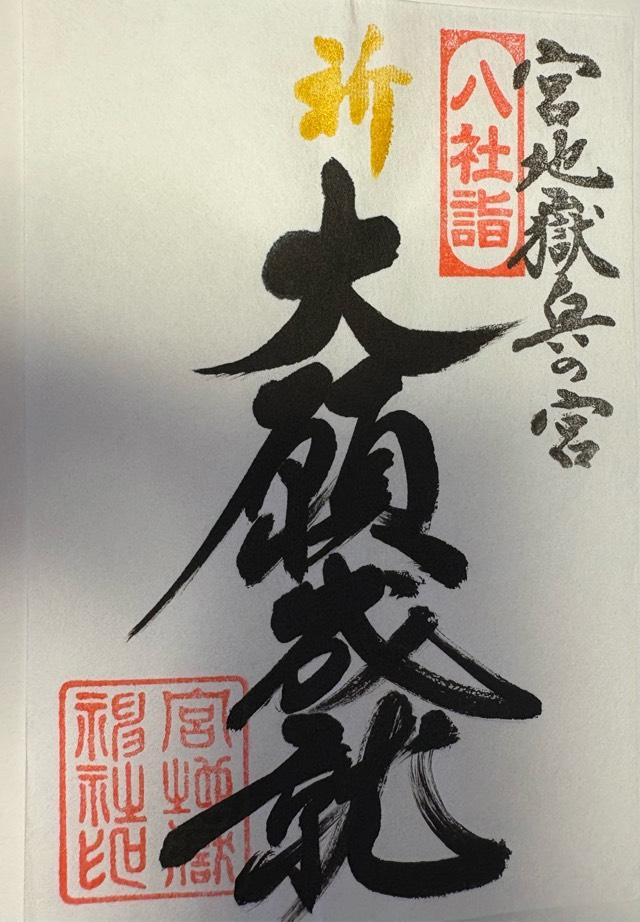 宮地嶽兵の宮
八社詣
祈
大願成就
宮地嶽
神社印